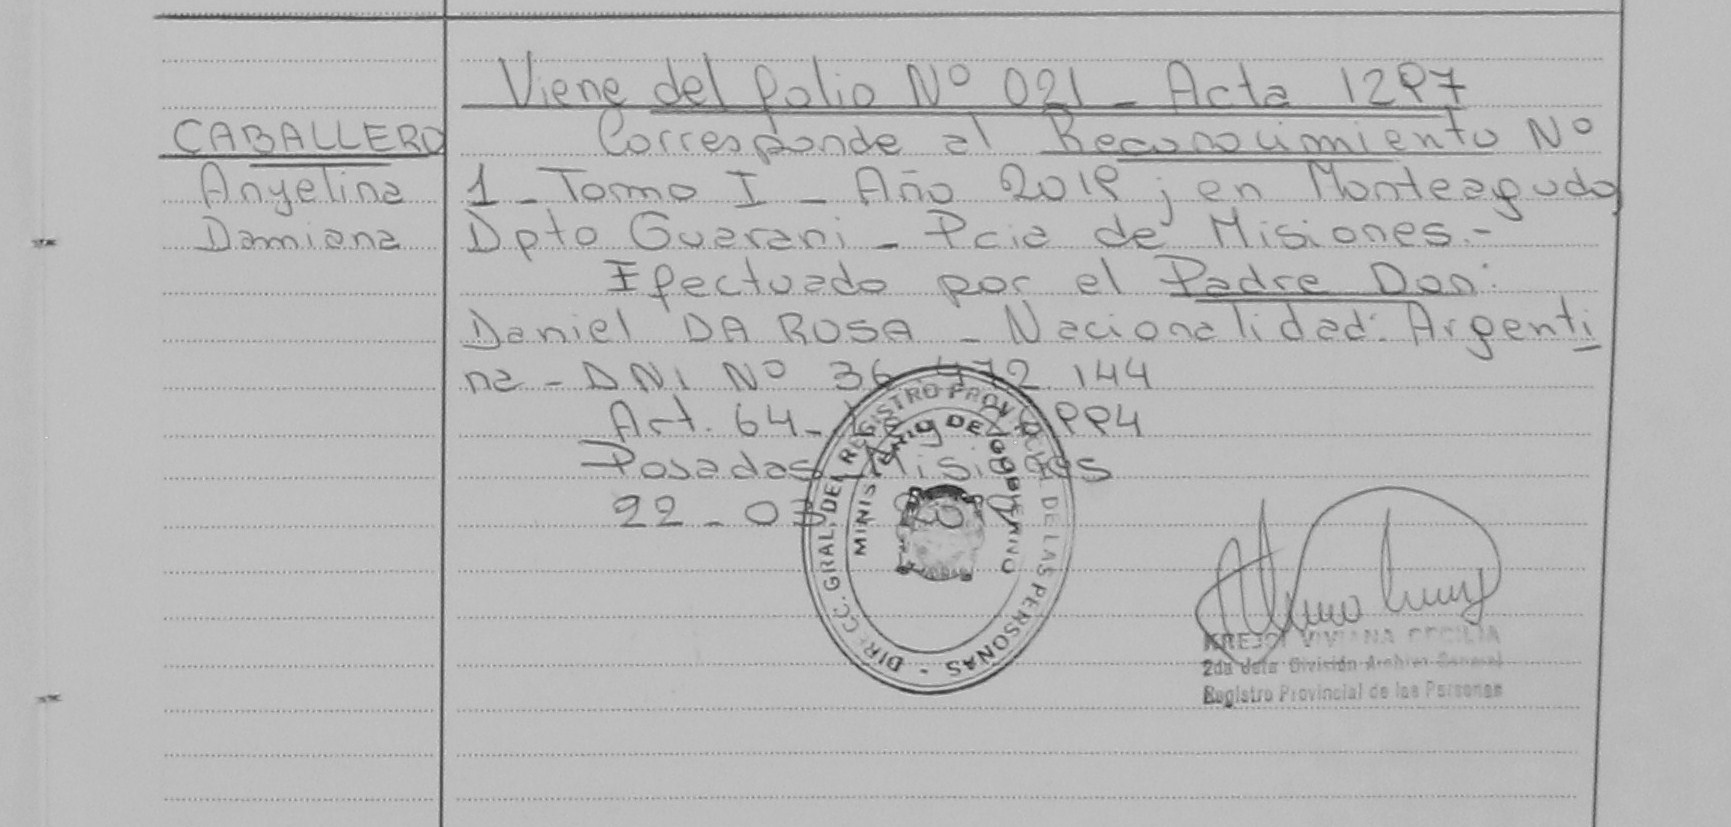 Viene del folio Nº 021 - Acta 1297
CABALLERO
Anyelina
Damiana
Corresponde al Reconocimiento Nº
1 - Tomo I - Año 2019 ; en Monteagudo
Dpto Guarani - Pcia de Misiones.-
Efectuado por el Padre Don:
Daniel DA ROSA - Nacionalidad: Argenti
na - DNI Nº 36 472 144
Art. 64 - Ley 994
Posadas Misiones
22 -
DIRECC. GRAL. DEL REGISTRO PROVINCIAL DE LAS PERSONAS -
MINISTERIO DE GOBIERNO
KREJCI VIVIANA CECILIA
2da Jefa División Archivo General
Registro Provincial de las Personas